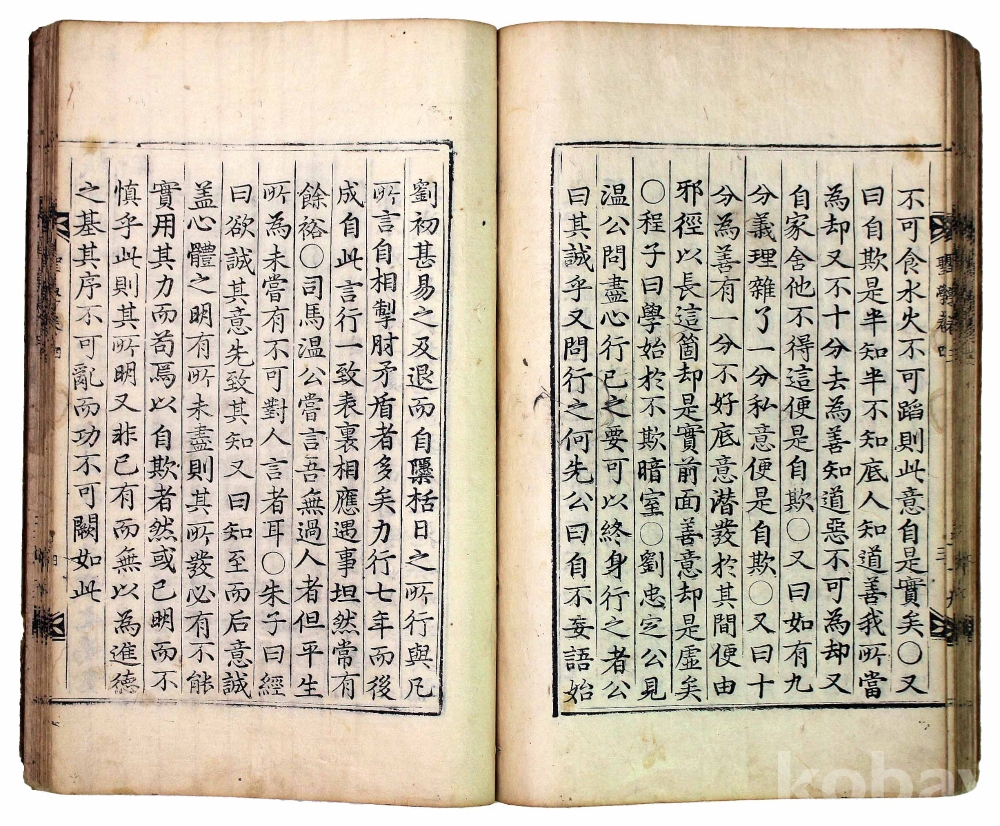 不可食水火不可蹈則此意自是實矣○又
曰自欺是半知半不知底人知道善我所當
為却又不十分去為善知道惡不可為却又
自家舍他不得這便是自欺○又曰如有九
分義理雜了一分私意便是自欺○又曰十
分為善有一分不好底意潛發於其間便由
邪徑以長這箇却是實前面善意却是虛矣
○程子曰學始於不欺暗室○劉忠定公見
温公問盡心行己之要可以終身行之者公
曰其誠乎又問行之何先公曰自不妄語始
劉初甚易之及退而自檃栝日之所行與凡
所言自相掣肘矛盾者多矣力行七年而後
成自此言行一致表裏相應遇事坦然常有
餘裕○司馬温公嘗言吾無過人者但平生
所為未嘗有不可對人言者耳○朱子曰經
曰欲誠其意先致其知又曰知至而后意誠
盖心體之明有所未盡則其所發必有不能
實用其力而苟焉以自欺者然或已明而不
慎乎此則其所明又非已有而無以為進德
之基其序不可亂而功不可闕如此
kobay